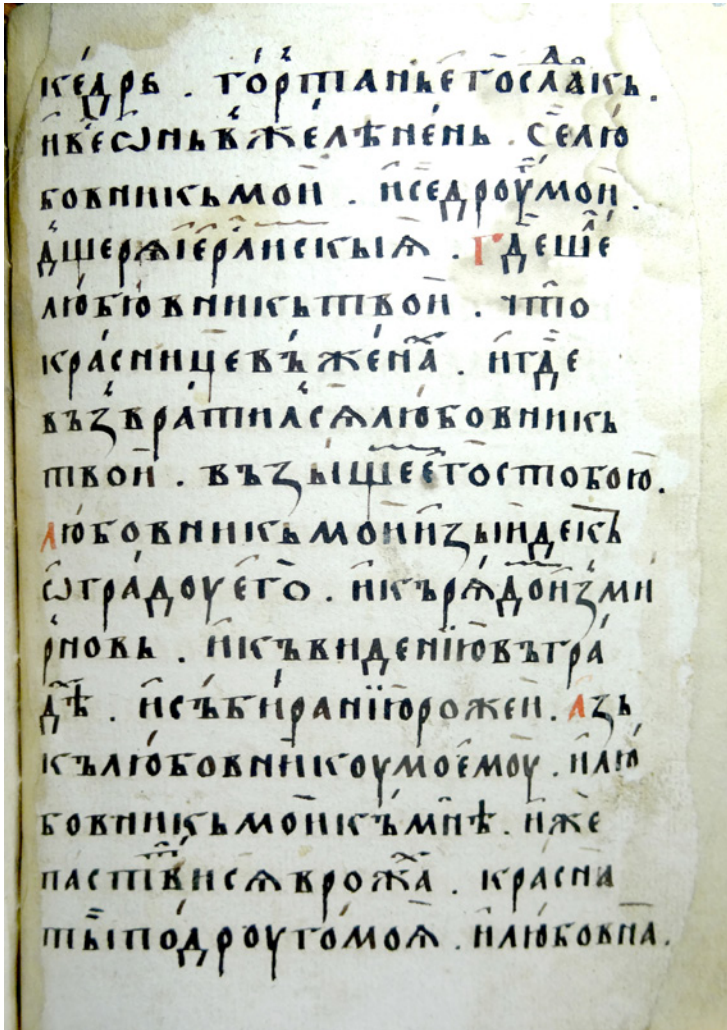 ке́дрь . го́ртань е́го сла́докъ .
и҆ ве́сѡ нь въжелѣ́нень . се лю
бовникь мои̑ . и҆ се дроу̑ мои̑ .
дщерѧ і҆ерⷭ҇лимскыѧ . Где ше́лъ
лю́бювникь твои̑ . что̀
кра́снице въ жена̑ . и҆ где̑
възвра́тилъ сѧ лю́бовникь
твои̑ . възыщемъ е́го с тобою̀ .
Любовникь мои̑ и҆зы́иде къ
ѡ҆гра́доу е҆го̀ . и҆ къ рѧ́дои̑ зми
рновь . и҆ къ видѐнїю въ гра
дѣ . и҆ събира́нїю роже́и . Азь
къ лю́бовникоу моемоу̀ . и҆ лю́
бовникь мои̑ къ мнѣ̀ . и҆же
паствитисѧ в рожа̑ . красна
ты̑ подроуго моѧ̀ . и҆ лю́бовна̀ .